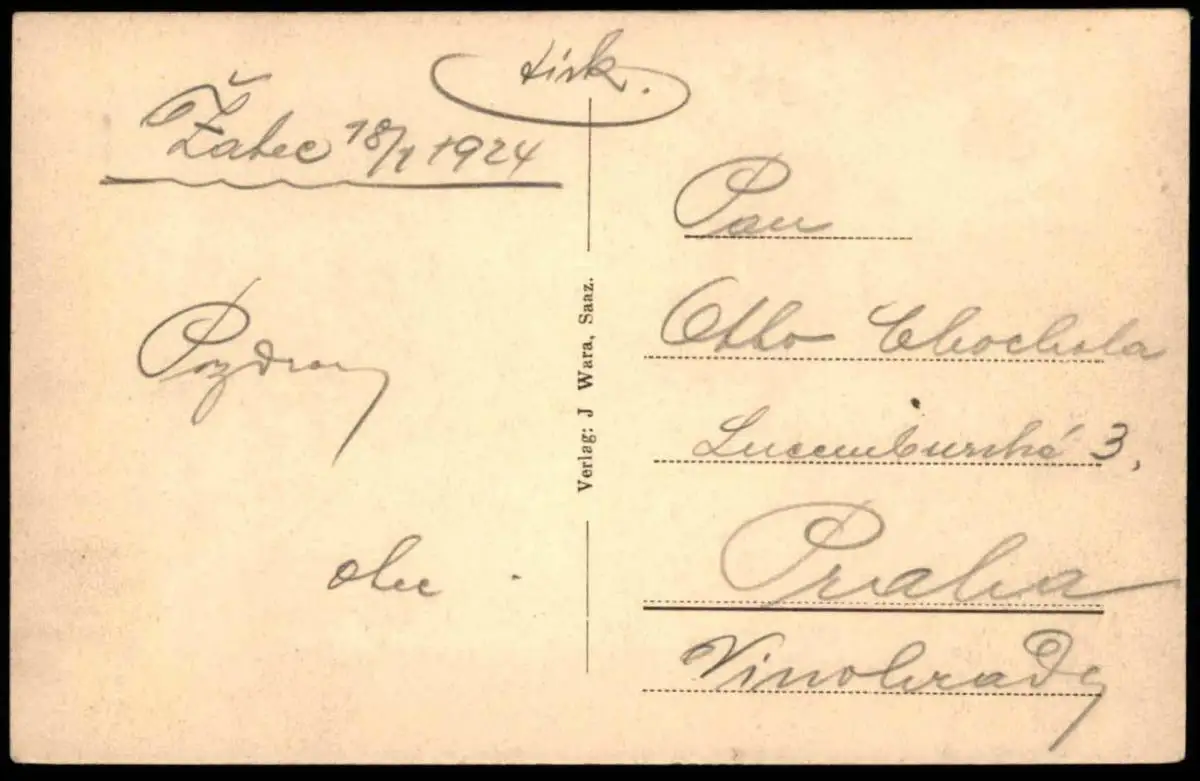 tisk.
Žatec 18/I 1924
Pozdrav
otec
Verlag: J Wara, Saaz.
Pan
Otto Chochola
Lucemburské 3,
Praha
Vinohrady